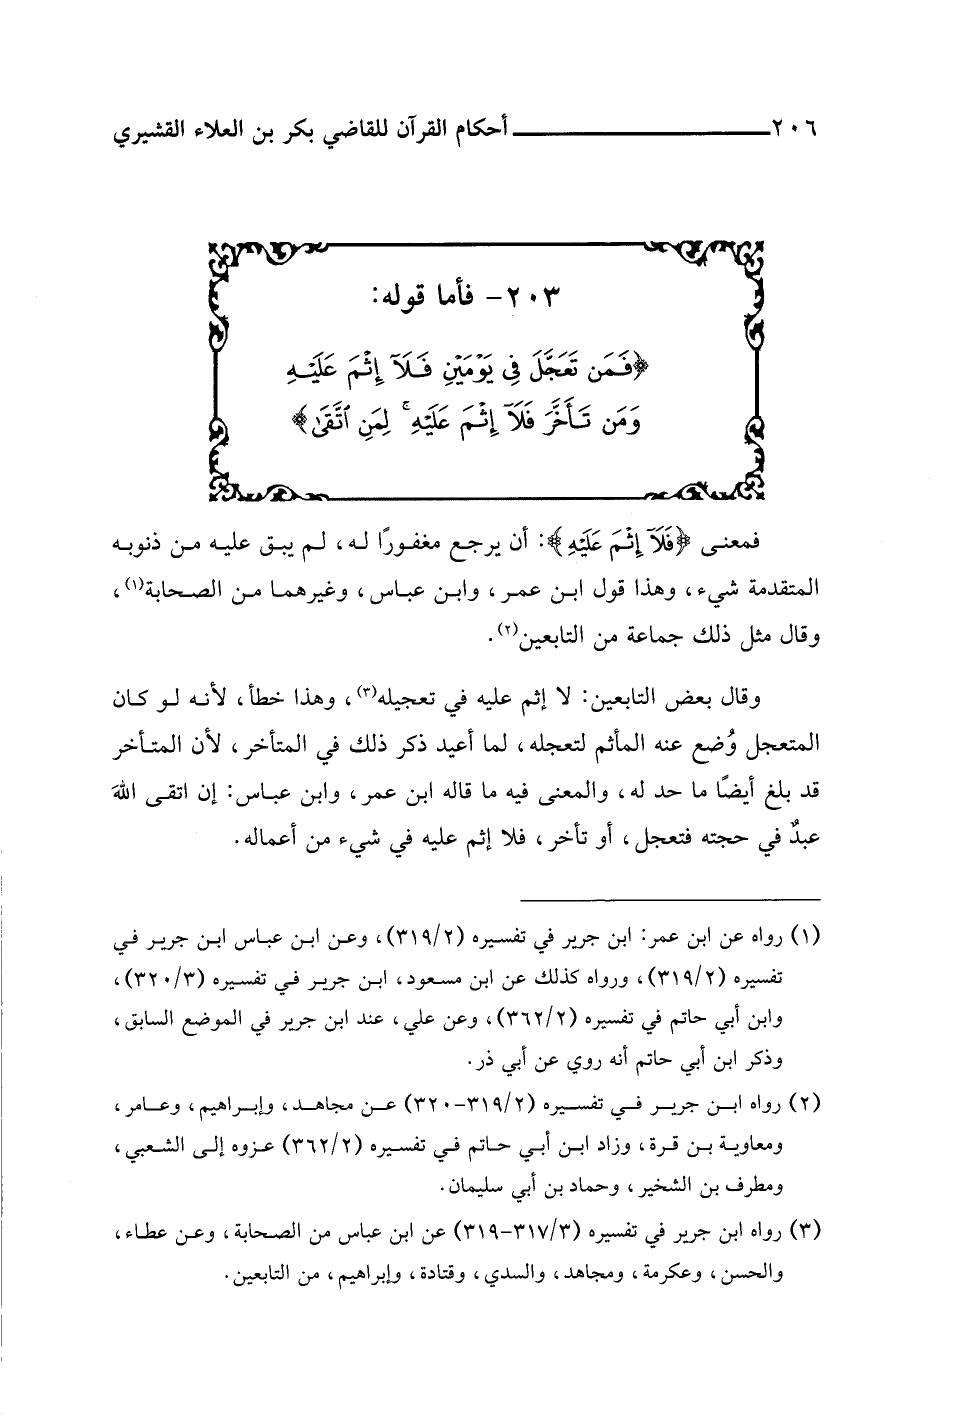 ٢٠٦ أحكام القرآن للقاضي بكر بن العلاء القشيري
٢٠٣- فأما قوله:
﴿فَمَن تَعَجَّلَ فِى يَوْمَيْنِ فَلَآ إِثْمَ عَلَيْهِ
وَمَن تَأَخَّرَ فَلَآ إِثْمَ عَلَيْهِ ۚ لِمَنِ ٱتَّقَىٰ﴾
فمعنى ﴿فَلَآ إِثْمَ عَلَيْهِ﴾: أن يرجع مغفورًا له، لم يبق عليه من ذنوبه
المتقدمة شيء، وهذا قول ابن عمر، وابن عباس، وغيرهما من الصحابة(١)،
وقال مثل ذلك جماعة من التابعين(٢).
وقال بعض التابعين: لا إثم عليه في تعجيله(٣)، وهذا خطأ، لأنه لو كان
المتعجل وُضع عنه المأثم لتعجله، لما أعيد ذكر ذلك في المتأخر، لأن المتأخر
قد بلغ أيضًا ما حد له، والمعنى فيه ما قاله ابن عمر، وابن عباس: إن اتقى اللهَ
عبدٌ في حجته فتعجل، أو تأخر، فلا إثم عليه في شيء من أعماله.
(١) رواه عن ابن عمر: ابن جرير في تفسيره (٣١٩/٢)، وعن ابن عباس ابن جرير في
تفسيره (٣١٩/٢)، ورواه كذلك عن ابن مسعود، ابن جرير في تفسيره (٣٢٠/٣)،
وابن أبي حاتم في تفسيره (٣٦٢/٢)، وعن علي، عند ابن جرير في الموضع السابق،
وذكر ابن أبي حاتم أنه روي عن أبي ذر.
(٢) رواه ابن جرير في تفسيره (٣١٩/٢-٣٢٠) عن مجاهد، وإبراهيم، وعامر،
ومعاوية بن قرة، وزاد ابن أبي حاتم في تفسيره (٣٦٢/٢) عزوه إلى الشعبي،
ومطرف بن الشخير، وحماد بن أبي سليمان.
(٣) رواه ابن جرير في تفسيره (٣١٧/٣-٣١٩) عن ابن عباس من الصحابة، وعن عطاء،
والحسن، وعكرمة، ومجاهد، والسدي، وقتادة، وإبراهيم، من التابعين.